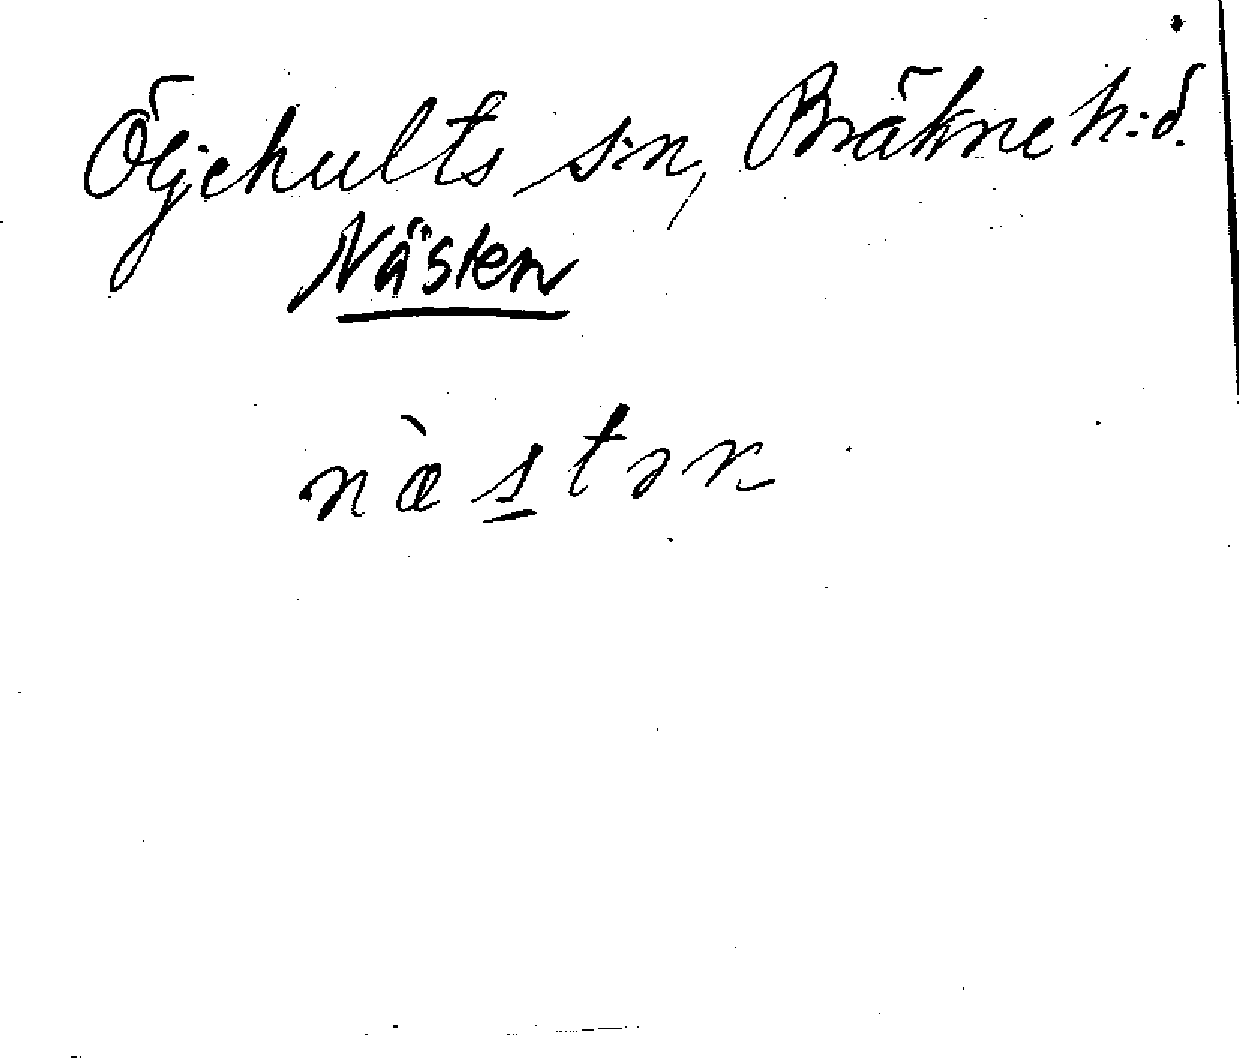 Öljehults s:n, Bräkne h:d.
Nästen
næ̀s̲tən